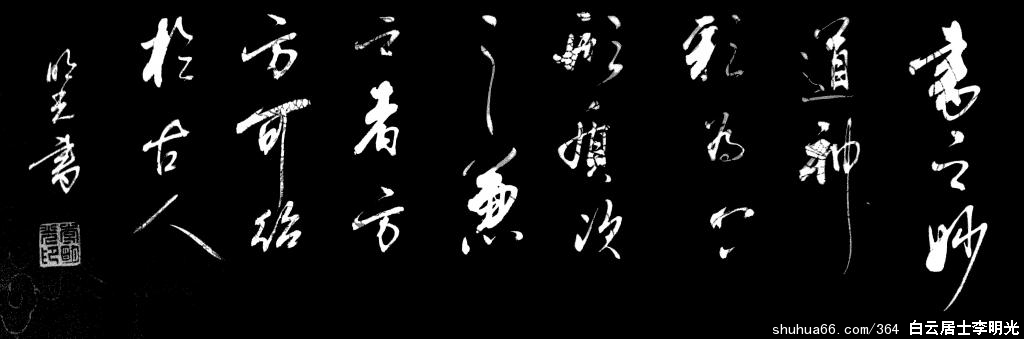 書之妙
道神
彩為上
形質次
之兼
之者方
方可紹
於古人
明光書
李明光印
shuhua66.com/364 白云居士李明光